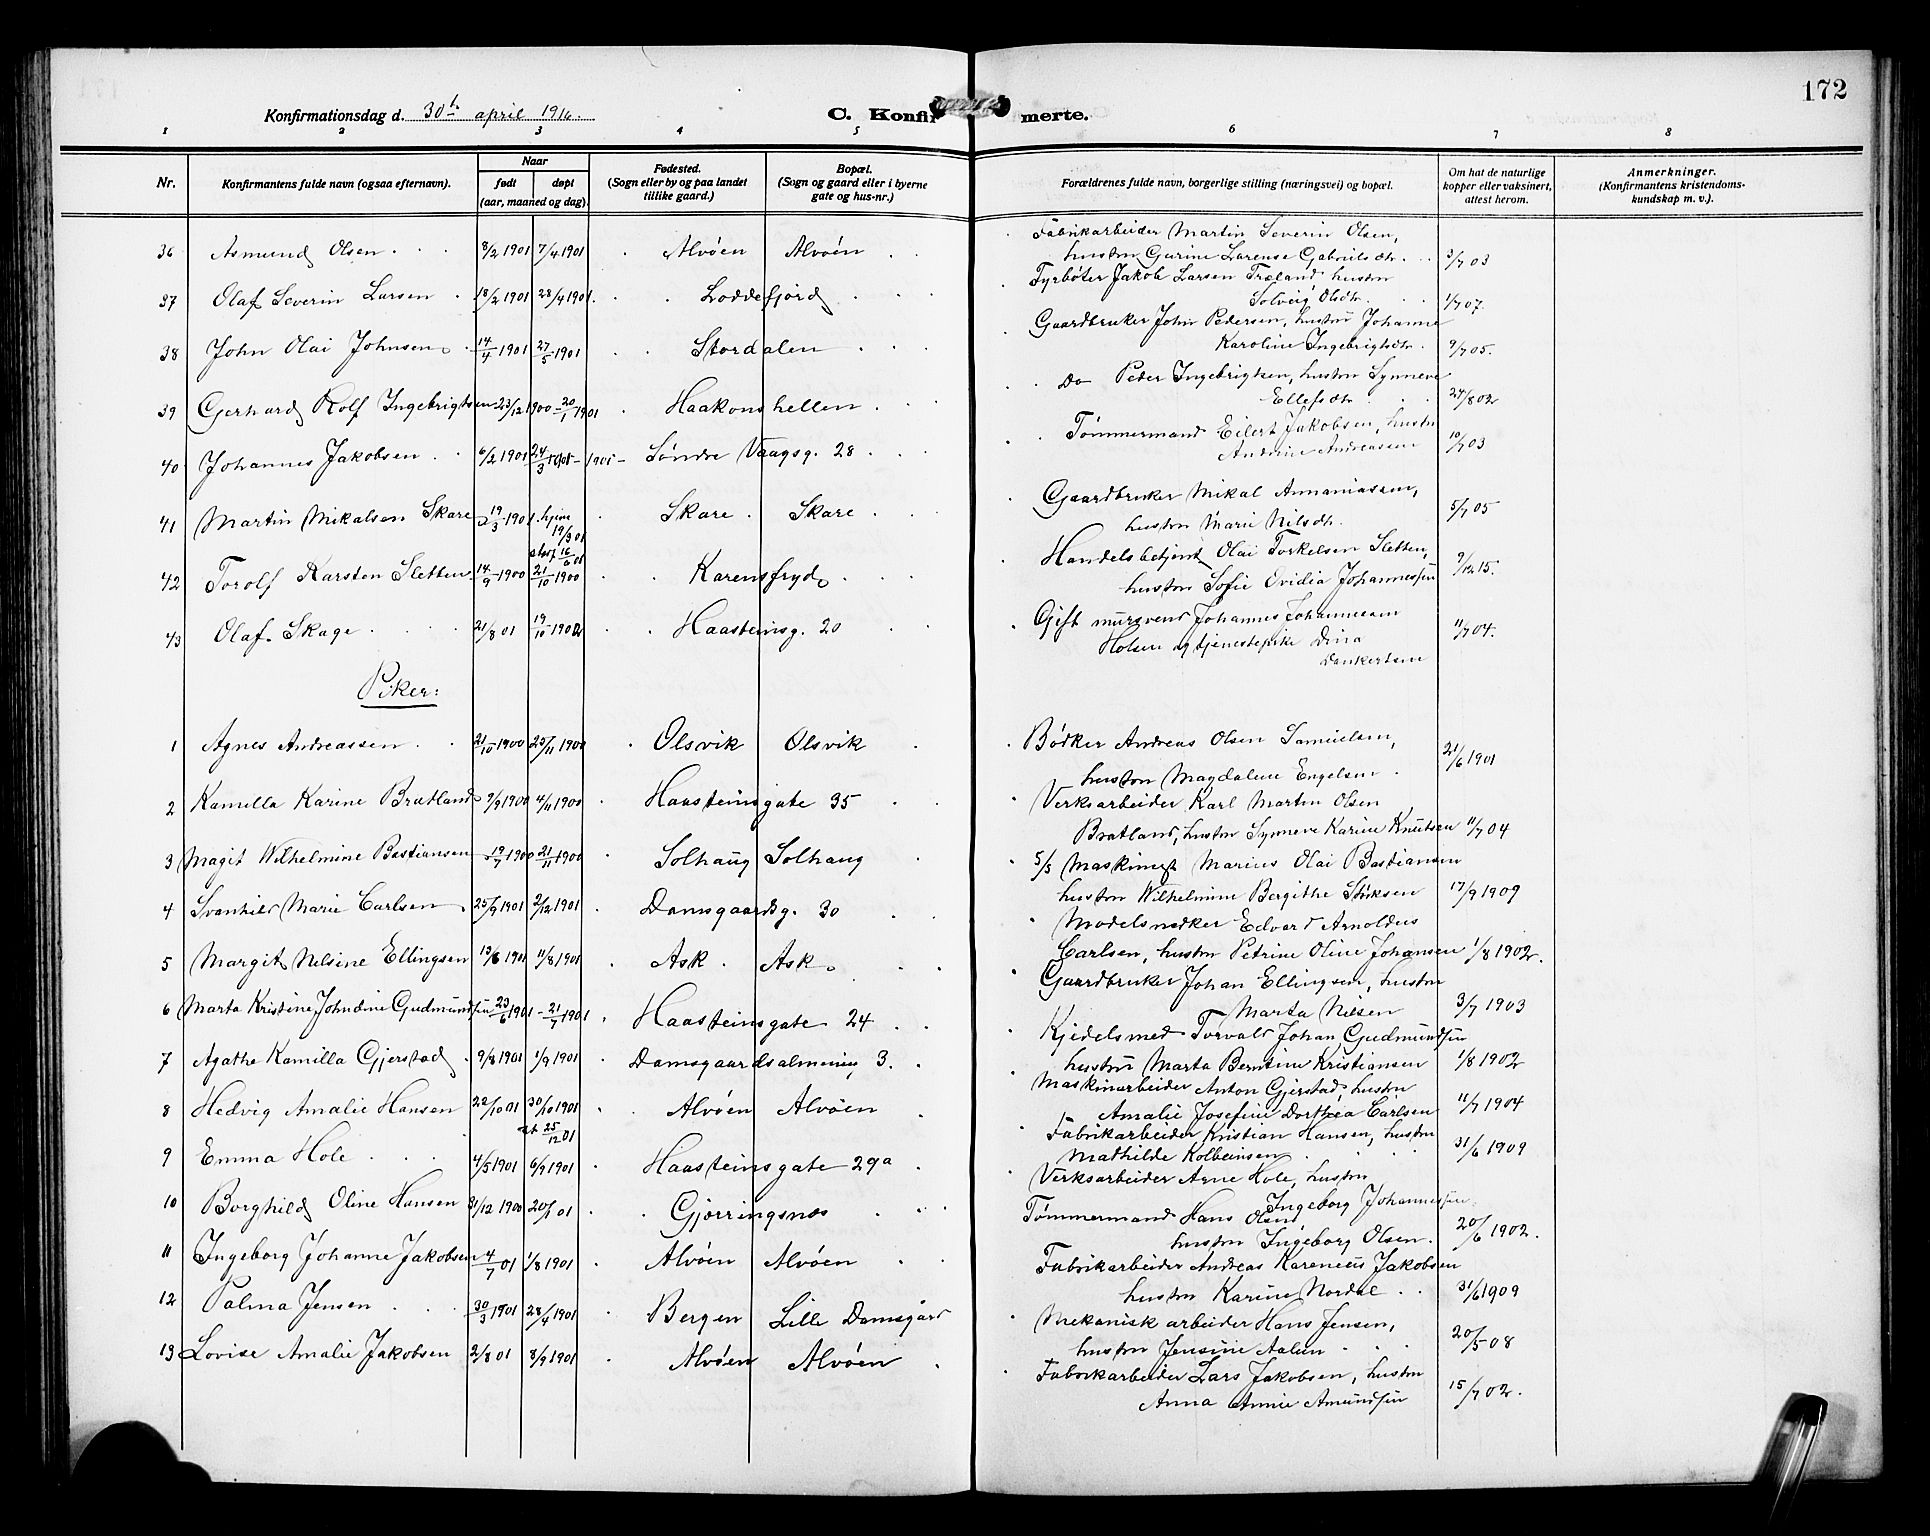 172
Konfirmationsdag d. 30te april 1916.
C. Konfirmerte.
1 2 3 4 5 6 7 8
Nr. Konfirmantens fulde navn (ogsaa efternavn). Naar født døpt (aar, maaned og dag). Fødested. (Sogn eller by og paa landet tillike gaard.) Bopæl. (Sogn og gaard eller i byerne gate og hus-nr.) Forældrenes fulde navn, borgerlige stilling (næringsvei) og bopæl. Om hat de naturlige kopper eller vaksinert, attest herom. Anmerkninger. (Konfirmantens kristendomskundskap m. v.).
36 Asmund Olsen 8/2 1901 7/4 1901 Alvøen Alvøen Fabrikarbeider Martin Severin Olsen,
hustru Gurine Larense Gabrielsdtr. 3/7 03
37 Olaf Severin Larsen 18/2 1901 28/4 1901. Loddefjord Fyrbøter Jakob Larsen Træland hustru
Solveig Olsdtr. 1/7 07.
38 John Olai Johnsen 14/4 1901 27/5 1901 Stordalen Gaardbruker John Pedersen, hustru Johanne
Karoline Ingebrigtsdtr. 9/7 05.
39 Gerhard Rolf Ingebrigtsen 23/12 1900 20/1 1901 Haakonshellen Do Peder Ingebrigtsen, hustru Synneve
Ellefsdtr. 27/8 02
40 Johannes Jakobsen 6/2 1901 24/3 1901 Søndre Vaagsg. 28 Tømmermand Eilert Jakobsen, hustru
Andrine Andreassen 10/7 03
41 Martin Mikalsen Skare 19/3 1901 hjem 19/3 01 Skare Skare Gaardbruker Mikal Annaniassen,
stadf 16/6 01 hustru Marie Nilsdtr. 5/7 05
42 Torolf Karsten Sletten 14/9 1900 21/10 1900 Karensfryd Handelsbetjent Olai Torkelsen Sletten,
hustru Sofie Ovidia Johannessen 9/12 15.
43 Olaf Skage 21/8 01 19/10 1902 Haasteinsg. 20 Gift mursvend Johannes Johannessen
Holsen og tjenestepike Dina
Dankertsen 11/7 04.
Piker:
1 Agnes Andreassen 21/10 1900 25/11 1900 Olsvik Olsvik Bødker Andreas Olsen Samuelsen,
hustru Magdalene Engelsen 21/6 1901
2 Kamilla Karine Bratland 9/9 1900 4/11 1900 Haasteinsgate 35 Verksarbeider Karl Martin Olsen
Bratland, hustru Synneve Karine Knutsen 11/7 04
3 Magit Wilhelmine Bastiansen 19/7 1900 21/11 1900 Solhaug Solhaug 5/5 Maskinmgt Marius Olai Bastiansen
hustru Wilhelmine Bergithe 17/9 1909
4 Svanhild Marie Carlsen 25/9 1901 2/12 1901 Damsgaardsg. 30 Modelsnedker Edvard Arnoldus
Carlsen, hustru Petrine Oline Johansen 1/8 1902.
5 Margit Nilsine Ellingsen 13/6 1901 11/8 1901 Ask Ask Gaardbruker Johan Ellingsen, hustru
Marta Nilsen 3/7 1903
6 Marta Kristine Johndine Gudmundsen 23/6 1901 21/7 1901 Haasteinsgate 24 Kjedelsmed Torvald Johan Gudmundsen
hustru Marta Berntine Kristiansen 1/8 1902
7 Agathe Kamilla Gjerstad 9/8 1901 1/9 1901 Damsgaardsalmening 3. Maskinarbeider Anton Gjerstad, hustru
Amalie Josefine Dorthea Carlsen 11/7 1904
8 Hedvig Amalie Hansen 22/10 01 30/10 1901 Alvøen Alvøen Fabrikarbeider Kristian Hansen, hustru
st 25/12 01 Mathilde Kolbeinsen 31/6 1909
9 Emma Hole 4/5 1901 6/9 1901 Haasteinsgate 29a Verksarbeider Arne Hole, hustru
Ingeborg Johannessen
10 Borghild Oline Hansen 31/12 1900 20/1 01 Gjørringsnæs Tømmermand Hans Olsen
hustru Ingeborg Olsen. 20/6 1902.
11 Ingeborg Johanne Jakobsen 4/7 01 1/8 1901 Alvøen Alvøen Fabrikarbeider Andreas Kareneus Jakobsen
hustru Karine Nordal 31/6 1909
12 Palma Jensen 30/3 1901 28/4 1901 Bergen Lille Damsgård Mekanisk arbeider Hans Jensen,
hustru Jensine Aalen 20/5 08
13 Lovise Amalie Jakobsen 2/8 01 8/9 1901 Alvøen Alvøen Fabrikarbeider Lars Jakobsen, hustru
Anna Annie Amundsen 15/7 02.